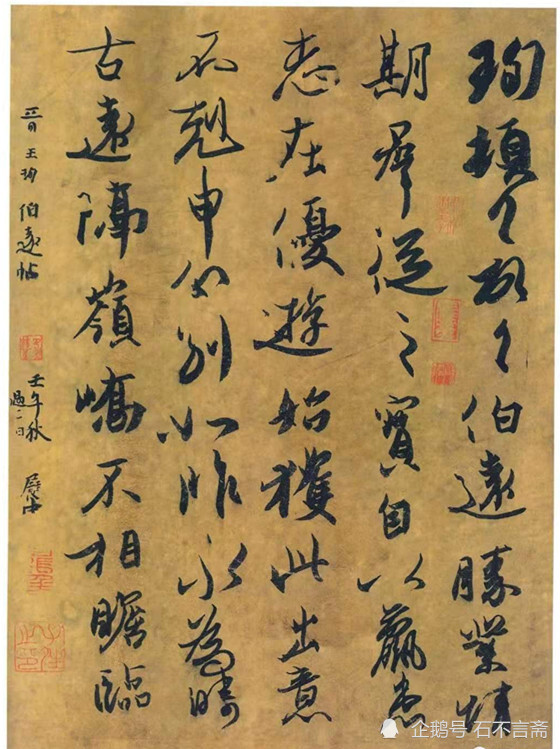 珣頓〻首〻伯遠勝業情
期羣從之寶自以羸患
志在優遊始獲此出意
不剋申分別如昨永為疇
古遠隔嶺嶠不相瞻臨
晋王珣伯遠帖
壬午秋
企鹅号 石不言斋